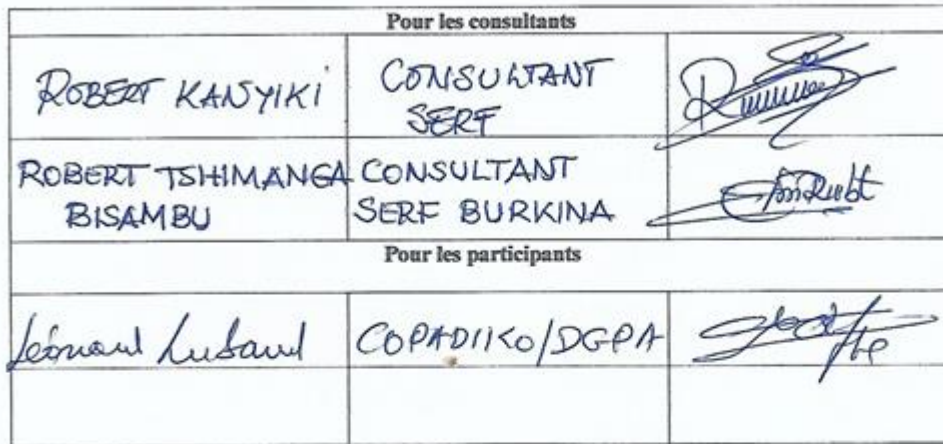 Pour les consultants
ROBERT KANYIKI
CONSULTANT
SERF
ROBERT TSHIMANGA
BISAMBU
CONSULTANT
SERF BURKINA
Pour les participants
COPADIIKO/DGPA